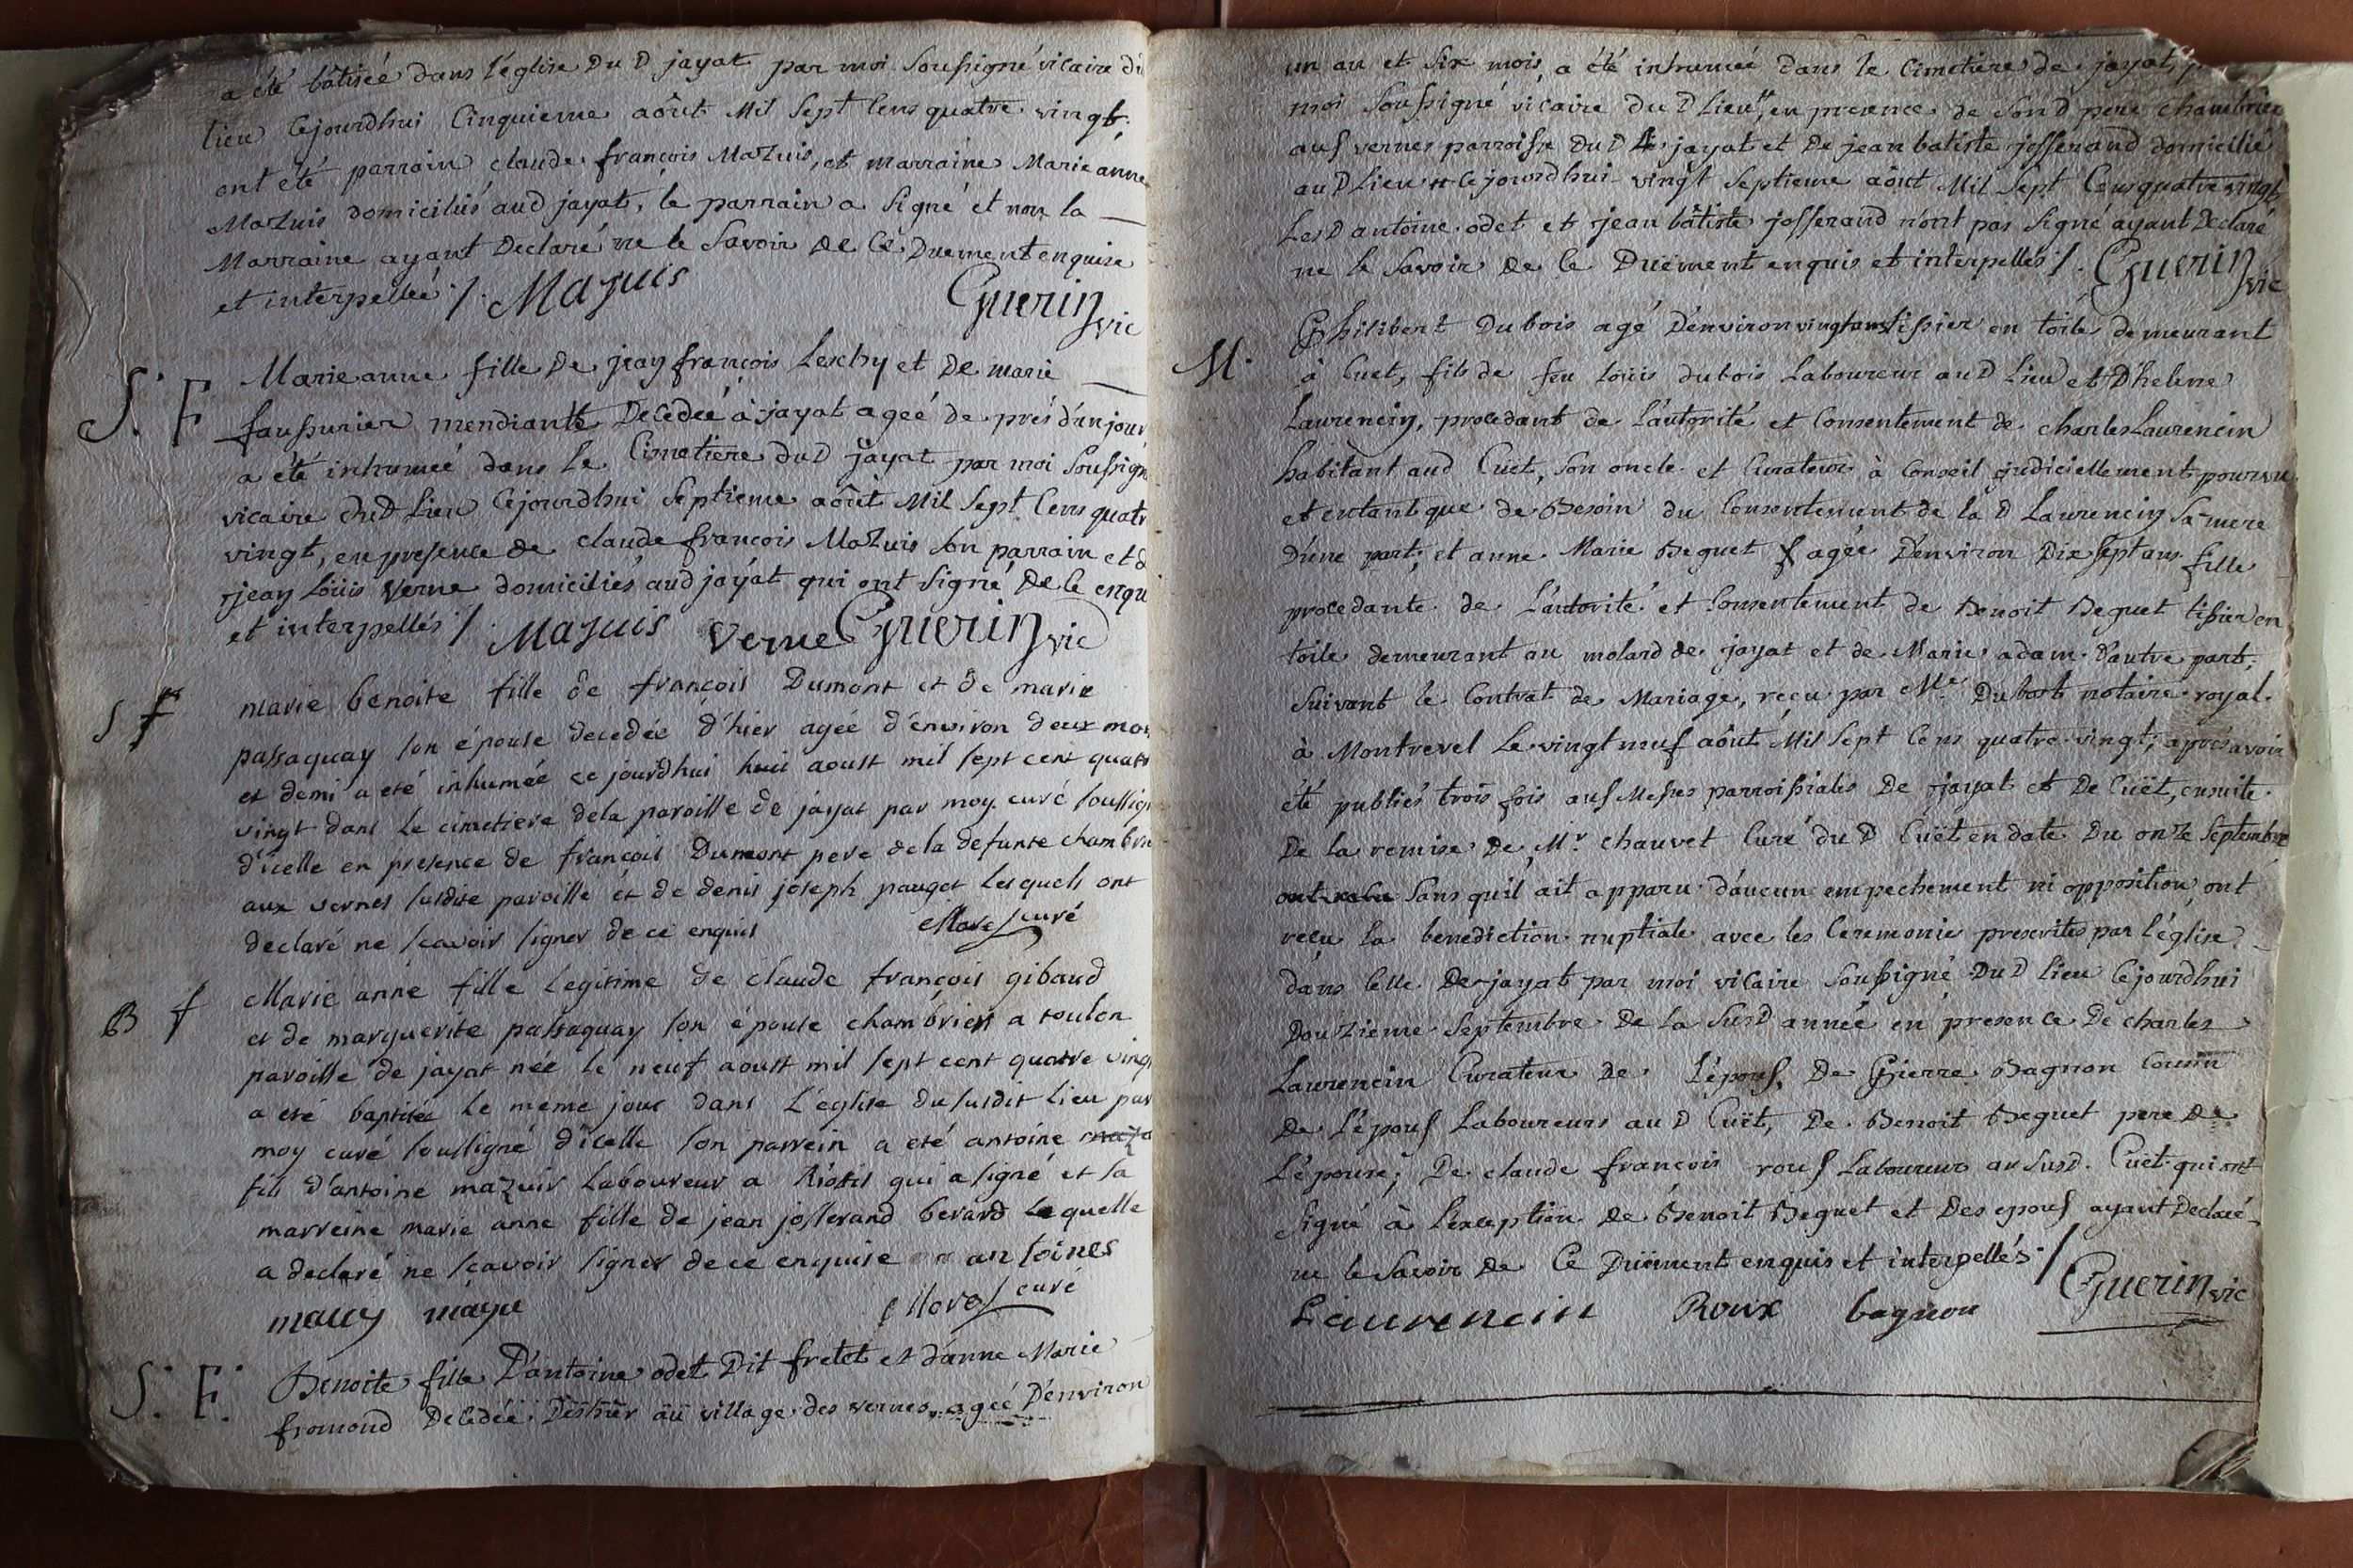 a été bâtiseé dans l'église Du D jayat par moi Soussigné vicaire du
lieu Cejourdhui Cinquieme aôut Mil Sept Cens quatre vingt.
ont été parrain claude françois Mazuis, et marraine Marie anne
Mazuis domiciliés aud jayat, le parrain a Signé et non la
Marraine ayant Declaré ne le Savoir de Ce Duement enquise
et interpelleé ./. Mazuis Guerin vic
S. F Marie anne fille De jean françois Leschy et De marie
faussurier mendiante Decedeé à jayat ageé de près d'un jour
a été inhumeé dans le Cimetiere du D jayat par moi Soussigné
vicaire du D Lieu Cejourdhui Septieme aôut Mil Sept Cens quatre
vingt, en presence de claude françois Mazuis Son parrain et d
jean Loüis Verne domiciliés aud jayat qui ont Signé De Ce enqu
et interpellés ./. Mazuis Verne Guerin vic
S f marie benoite fille de françois Dumont et de marie
passaquay son épouse decedée d'hier ageé d'environ deux mois
et demi a eté inhumée ce jourd'hui huit aoust mil sept cent quatre
vingt dans le cimetiere de la paroisse de jayat par moy curé soussigné
d'icelle en presence de françois Dumont pere de la defunte chambrier
aux vernes susdite paroisse et de denis joseph pauget lesquels ont
declaré ne sçavoir signer de ce enquis curé
B f Marie anne fille legitime de claude françois gibaud
et de marguerite passaquay son épouse chambriers a toulon
paroisse de jayat née le neuf aoust mil sept cent quatre vingt
a eté baptisée le même jour dans l'église du susdit lieu par
moy curé soussigné d'icelle son parrein a eté antoine
fils d'antoine mazuir laboureur a qui a signé et sa
marreine marie anne fille de jean josserand berard laquelle
a declaré ne sçavoir signer de ce enquise antoines
curé
S. F. Benoite fille D'antoine odet Dit fretet et d'anne Marie
fromond Decedéé D'eshier au village des vernes, ageé D'environ
un an et Six mois a été inhumeé dans le Cimetiere de jayat,
moi Soussigné vicaire du D Lieu, en presence de Son D pere chambrier
aus vernes parroisse du D jayat et De jean batiste josserand domicilié
au D Lieu Cejourdhui vingt Septieme aôut Mil Sept Cens quatre vingt
Les D antoine odet et jean bâtiste josserand n'ont pas Signé ayant Declaré
ne le Savoir de Ce Duëment enquis et interpellés ./. Guerin vic
M. Philibert Dubois agé D'environ vingt ans tissier en toile demeurant
à Cuet, fils de feu Loüis dubois Laboureur au D Lieu et D'helene
Laurencin, procedant de L'autorité et Consentement de charles Laurencin
habitant aud Cuët, Son oncle et Curateur à Conseil judiciellement pourvu
et entant que de Besoin du Consentement de la D Laurencin Sa mere
D'une part; et anne Marie Beguet agée D'environ Dix sept ans fille
procedante de L'autorité et Consentement de Benoit Beguet tissier en
toile demeurant au molard de jayat et de Marie adam d'autre part;
Suivant le Contrat de Mariage, reçu par Me. Dubost notaire royal
à Montrevel Le vingt neuf aôut Mil Sept Cens quatre vingt; après avoir
été publiés trois fois aus Messes parroissiales De jayat et De Cuët, ensuite
De la remise De Mr. Chauvet Curé du D Cuët en date Du onze Septembre
Sans quil ait apparu d'aucun empechement ni opposition, ont
reçu la benediction nuptiale avec les Ceremonie prescrites par l'église
dans Celle De jayat par moi vicaire Soussigné Du D Lieu Cejourdhui
Douzieme Septembre De la Susd année en presence De charles
Laurencin Curateur De L'épous, De Pierre Bagnon Cousin
De L'épous Laboureurs au D Cuët, De Benoit Beguet pere De
L'épouse, De claude françois rous Laboureur au Susd. Cuët qui ont
Signé à L'exception de Benoit Beguet et Des epous ayant Declaré
ne le Savoir de Ce Düement enquis et interpellés ./. Guerin vic
Laurencin Roux bagnon